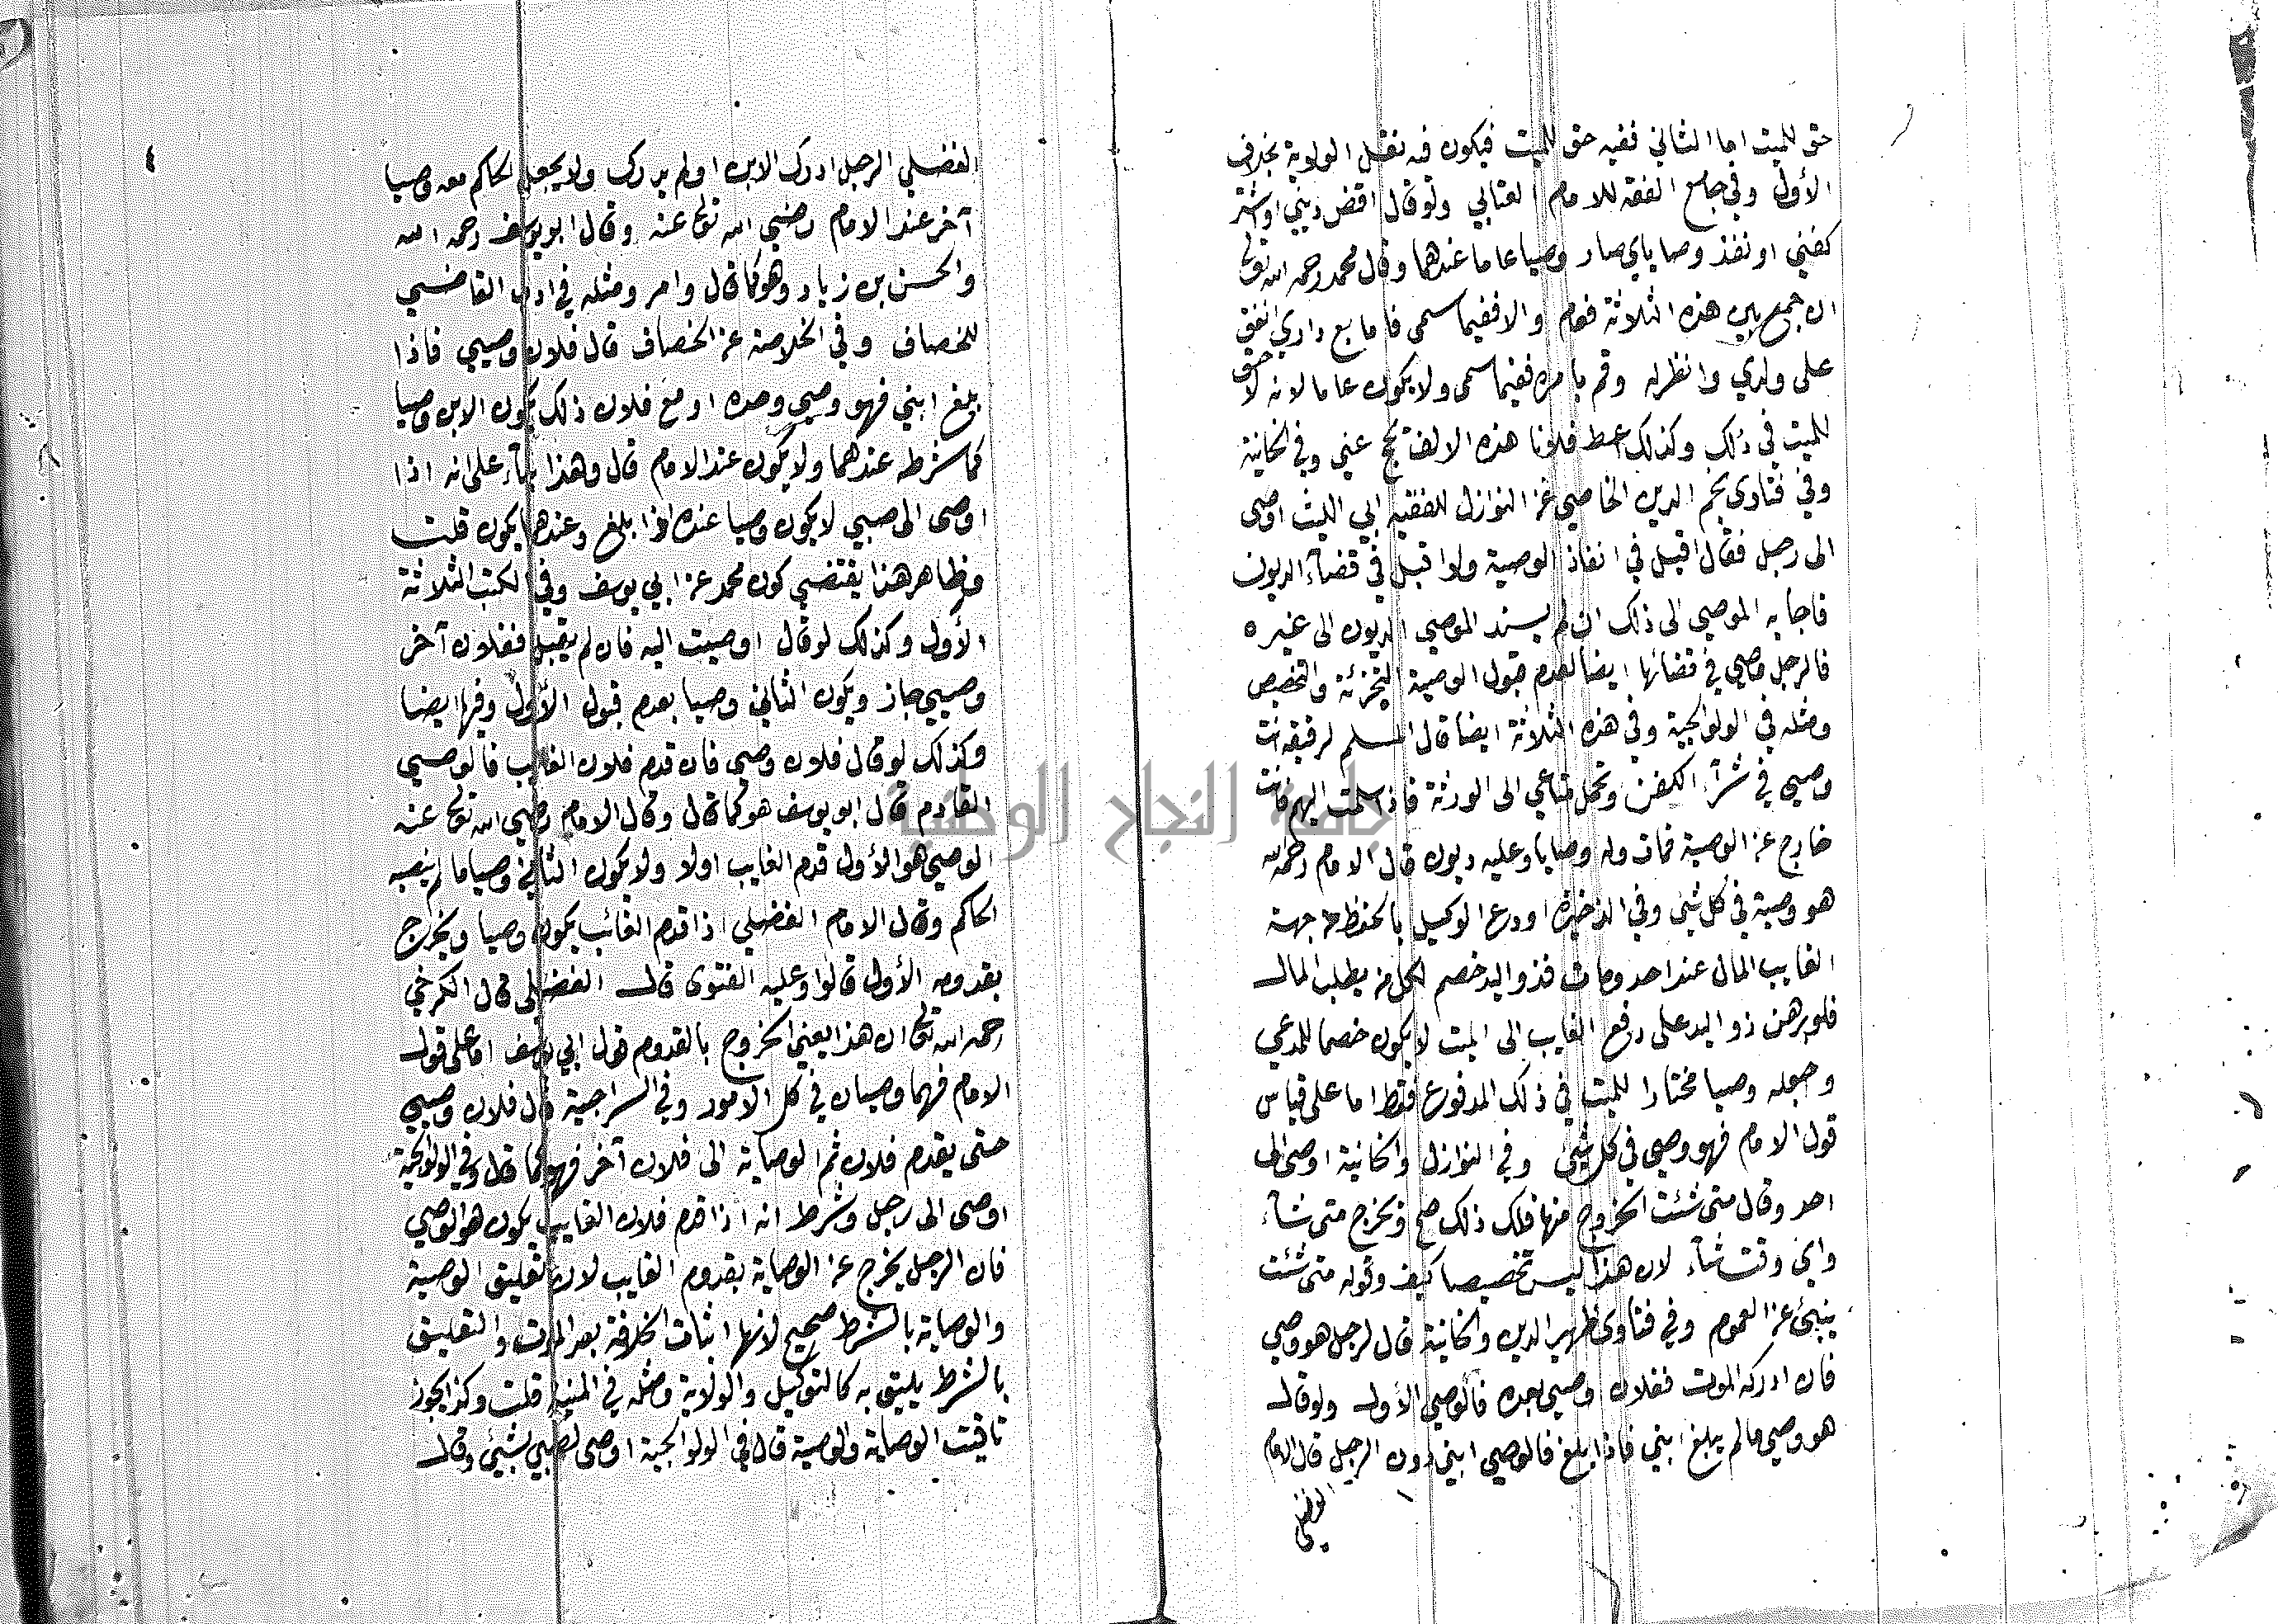 حق للميت اما الثاني ففيه حق للميت فيكون فيه نقل الولاية بخلاف
الأول وفي جامع الفقه للامام العتابي ولو قال اقض ديني او اشتر
كفني او نفذ وصاياي صار وصيا عاما عندهما وقال محمد رحمه الله تعالى
ان جمع بين هذه الثلاثة فعام والا ففيما سمى فاما بع داري انفق
على ولدي وانظر له وقم بامره ففيما سمى ولا يكون عاما لانه لا حق
للميت في ذلك وكذلك اعط فلانا هذه الالف يحج عني وفي الخانية
وفي فتاوى نجم الدين الخاصي عن النوازل للفقيه ابي الليث اوصى
الى رجل فقال اقبل في انفاذ الوصية ولا اقبل في قضاء الديون
فاجابه الموصي الى ذلك ان لم يسند الموصي الديون الى غيره
فالرجل وصي في قضائها ايضا لعدم قبول الوصية التجزئة والتخصيص
ومثله في الولوالجية وفي هذه الثلاثة ايضا قال المسلم لرفيقه انت
وصيي في شراء الكفن وتحمل متاعي الى الورثة فاذا سلمت اليهم فانت
خارج عن الوصية فمات وله وصايا وعليه ديون قال الامام رحمه الله
هو وصية في كل شئ وفي الذخيرة اودع الوكيل بالحفظ من جهة
الغايب المال عند احد ومات فذو اليد خصم لكل من يطلب المال
فلو برهن ذو اليد على دفع الغايب الى الميت لا يكون خصما للمدعي
وجعله وصيا مختارا للميت في ذلك المدفوع فقط اما على قياس
قول الامام فهو وصي في كل شئ وفي النوازل والخانية اوصى الى
احد وقال متى شئت الخروج منها فلك ذلك صح ويخرج متى شاء
واي وقت شاء لان هذا ليس تخصيصا كيف وقوله متى شئت
ينبئ عن العموم وفي فتاوى ظهير الدين والخانية قال لرجل هو وصي
فان ادركه الموت ففلان وصيي بعده فالوصي الأول ولو قال
هو وصي ما لم يبلغ ابني فاذا بلغ فالوصي ابني دون الرجل قال الامام
الفضلي
الفضلي الرجل ادرك الابن او لم يدرك ولا يجعل الحاكم معه وصيا
آخر عند الامام رضي الله تعالى عنه وقال ابو يوسف رحمه الله
والحسن بن زياد وهو كما قال وامر ومثله في ادب القاضي
للخصاف وفي الخلاصة عن الخصاف قال فلان وصيي فاذا
بلغ ابني فهو وصيي وحده او مع فلان ذلك يكون الابن وصيا
كما شرطه عندهما ولا يكون عند الامام قال وهذا بناء على انه اذا
اوصى الى صبي لا يكون وصيا عنده اذا بلغ وعندهما يكون قلت
وظاهر هذا يقتضي كون محمد عن ابي يوسف وفي الكتب الثلاثة
الأول وكذلك لو قال اوصيت اليه فان لم يقبل ففلان آخر
وصيي جاز ويكون الثاني وصيا بعدم قبول الأول وفيها ايضا
وكذلك لو قال فلان وصي فان قدم فلان الغايب فالوصي
القادم قال ابو يوسف هو كما قال وقال الامام رضي الله تعالى عنه
الوصي هو الأول قدم الغايب اولا ولا يكون الثاني وصيا ما لم ينصبه
الحاكم وقال الامام الفضلي اذا قدم الغائب يكون وصيا ويخرج
بقدومه الأول قالوا وعليه الفتوى قال الفضلي قال الكرخي
رحمه الله تعالى ان هذا يعني الخروج بالقدوم قول ابي يوسف اما على قول
الامام فهما وصيان في كل الامور وفي السراجية قال فلان وصيي
حتى يقدم فلان ثم الوصاية الى فلان آخر فهو كما قال وفي الولوالجية
اوصى الى رجل وشرط انه اذا قدم فلان الغايب يكون هو الوصي
فان الرجل يخرج عن الوصاية بقدوم الغايب لان تعليق الوصية
والوصاية بالشرط صحيح لانها اثبات الخلافة بعد الموت والتعليق
بالشرط يليق به كالتوكيل والولاية ومثله في المنية قلت وكذا يجوز
تاقيت الوصاية والوصية قال في الولوالجية اوصى لصبي بشيئ وقال
٤
جامعة النجاح الوطنية